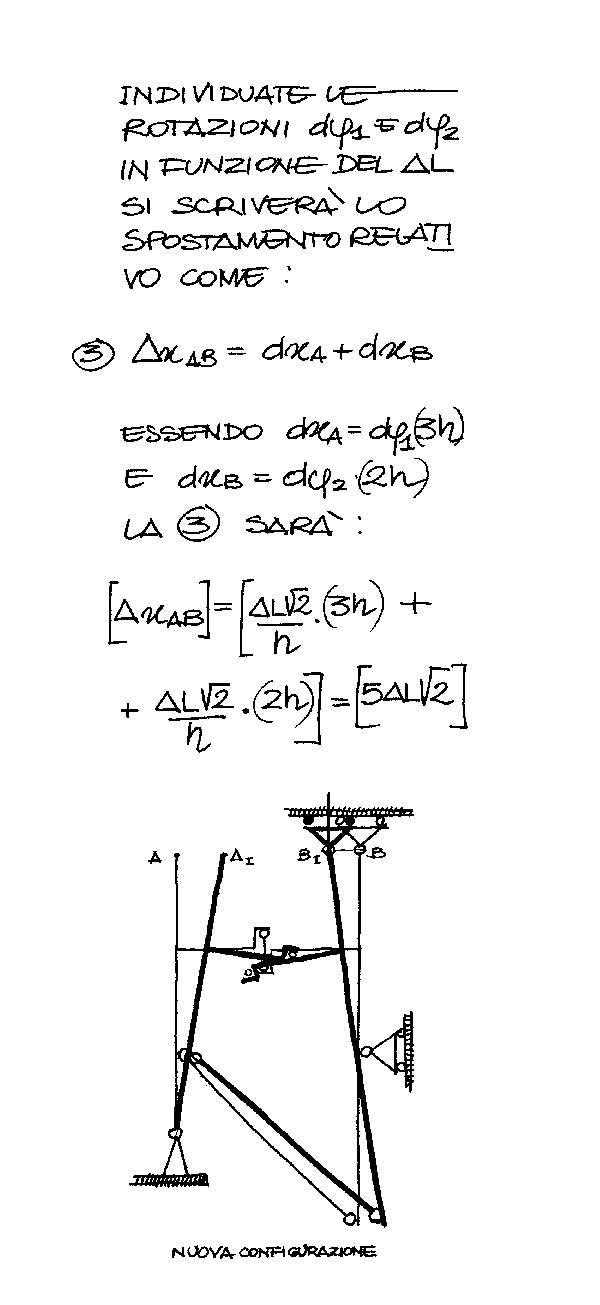 INDIVIDUATE LE
ROTAZIONI dφ₁ E dφ₂
IN FUNZIONE DEL ΔL
SI SCRIVERÀ LO
SPOSTAMENTO RELATI
VO COME :
③ Δx_AB = dx_A + dx_B
ESSENDO dx_A = dφ₁(3h)
E dx_B = dφ₂ (2h)
LA ③ SARÀ :
[Δx_AB] = [ΔL√2/h · (3h) +
+ ΔL√2/h · (2h)] = [5ΔL√2]
A A_I B_I B
NUOVA CONFIGURAZIONE